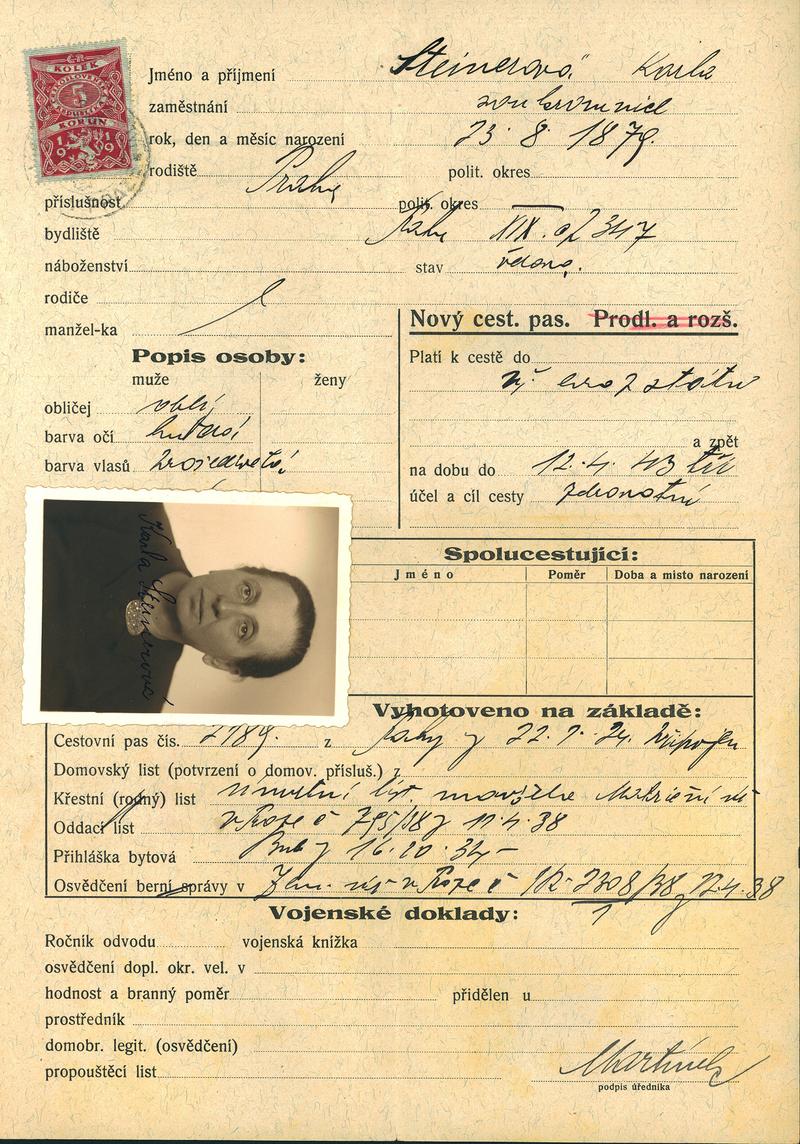 KOLEK
5
KORUN
1919
Jméno a příjmení Steinerová Karla
zaměstnání soukromnice
rok, den a měsíc narození 23. 8. 1879.
rodiště Praha polit. okres
příslušnost polit. okres
bydliště Praha XIX. 347
náboženství stav vdova.
rodiče
manžel-ka
Nový cest. pas. Prodl. a rozš.
Popis osoby:
muže ženy
Platí k cestě do
obličej oblý
barva očí hnědá
a zpět
barva vlasů prosedivělá
na dobu do 12. 4. 43
účel a cíl cesty zdravotní
Karla Steinerová
Spolucestující:
Jméno Poměr Doba a místo narození
Vyhotoveno na základě:
Cestovní pas čís. 2189. z Prahy z 22. 24. připojen
Domovský list (potvrzení o domov. přísluš.) z
Křestní (rodný) list úmrtní list manžela
Oddací list v Praze č 795/38 z 11.4.38
Přihláška bytová z 16.10.34
Osvědčení berní správy v Praze č 2308/38 z 12.4.38
1
Vojenské doklady:
Ročník odvodu vojenská knížka
osvědčení dopl. okr. vel. v
hodnost a branný poměr přidělen u
prostředník
domobr. legit. (osvědčení)
propouštěcí list
Martínek
podpis úředníka